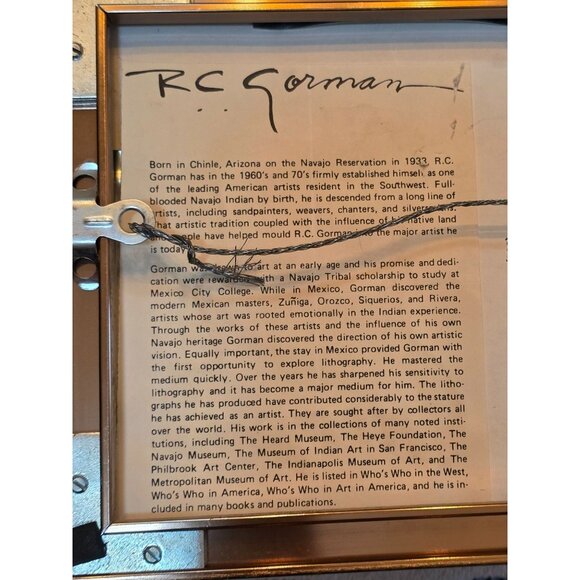 R.C. Gorman
Born in Chinle, Arizona on the Navajo Reservation in 1933, R.C.
Gorman has in the 1960's and 70's firmly established himself as one
of the leading American artists resident in the Southwest. Full-
blooded Navajo Indian by birth, he is descended from a long line of
artists, including sandpainters, weavers, chanters, and silversmiths.
That artistic tradition coupled with the influence of his native land
and people have helped mould R.C. Gorman into the major artist he
is today.
Gorman was drawn to art at an early age and his promise and dedi-
cation were rewarded with a Navajo Tribal scholarship to study at
Mexico City College. While in Mexico, Gorman discovered the
modern Mexican masters, Zuñiga, Orozco, Siquerios, and Rivera,
artists whose art was rooted emotionally in the Indian experience.
Through the works of these artists and the influence of his own
Navajo heritage Gorman discovered the direction of his own artistic
vision. Equally important, the stay in Mexico provided Gorman with
the first opportunity to explore lithography. He mastered the
medium quickly. Over the years he has sharpened his sensitivity to
lithography and it has become a major medium for him. The litho-
graphs he has produced have contributed considerably to the stature
he has achieved as an artist. They are sought after by collectors all
over the world. His work is in the collections of many noted insti-
tutions, including The Heard Museum, The Heye Foundation, The
Navajo Museum, The Museum of Indian Art in San Francisco, The
Philbrook Art Center, The Indianapolis Museum of Art, and The
Metropolitan Museum of Art. He is listed in Who's Who in the West,
Who's Who in America, Who's Who in Art in America, and he is in-
cluded in many books and publications.